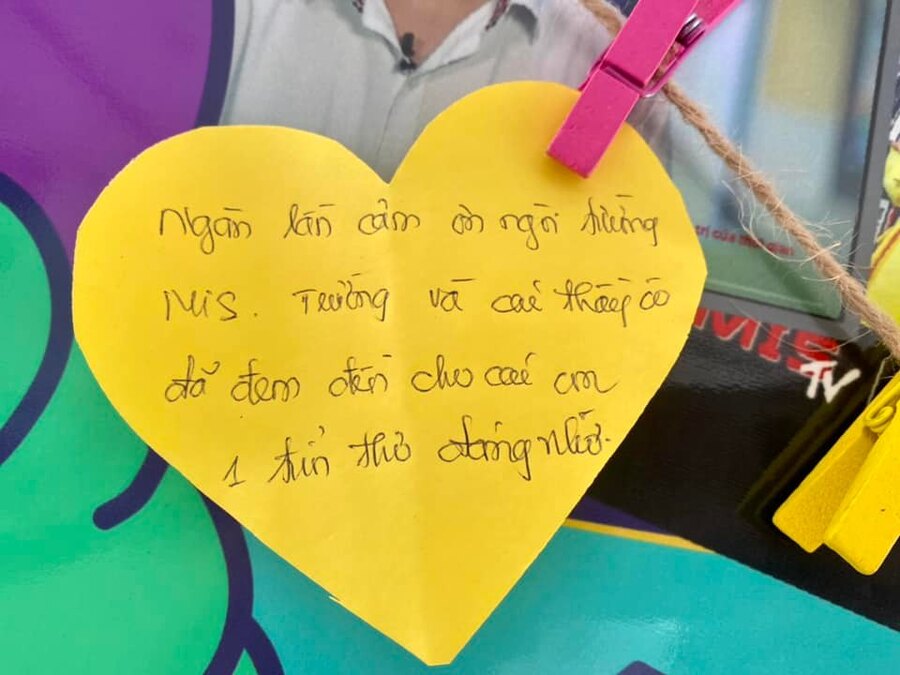 Ngàn lần cảm ơn ngôi trường
MIS. Trường và các thầy cô
đã đem đến cho các em
1 tuổi thơ đáng nhớ.
trí của thời gian
MIS
TV